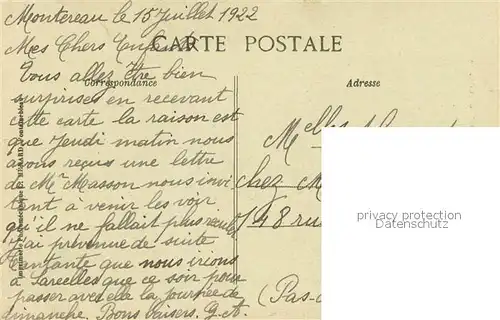 Montereau le 15 Juillet 1922
Mes Chers Enfants
CARTE POSTALE
Vous allez être bien
Correspondance
Adresse
surprises en recevant
cette carte la raison est
que Jeudi matin nous
avons reçu une lettre
de Mr Masson nous invi
tent à venir les voir
qu'il ne fallait plus
J'ai prévenue de suite
que nous irions
à Sarcelles que ce soir pour
passer avec elle la Journée de
dimanche. Bons baisers. G. A.
Melles
chez M
148 ru
(Pas-
privacy protection
Datenschutz